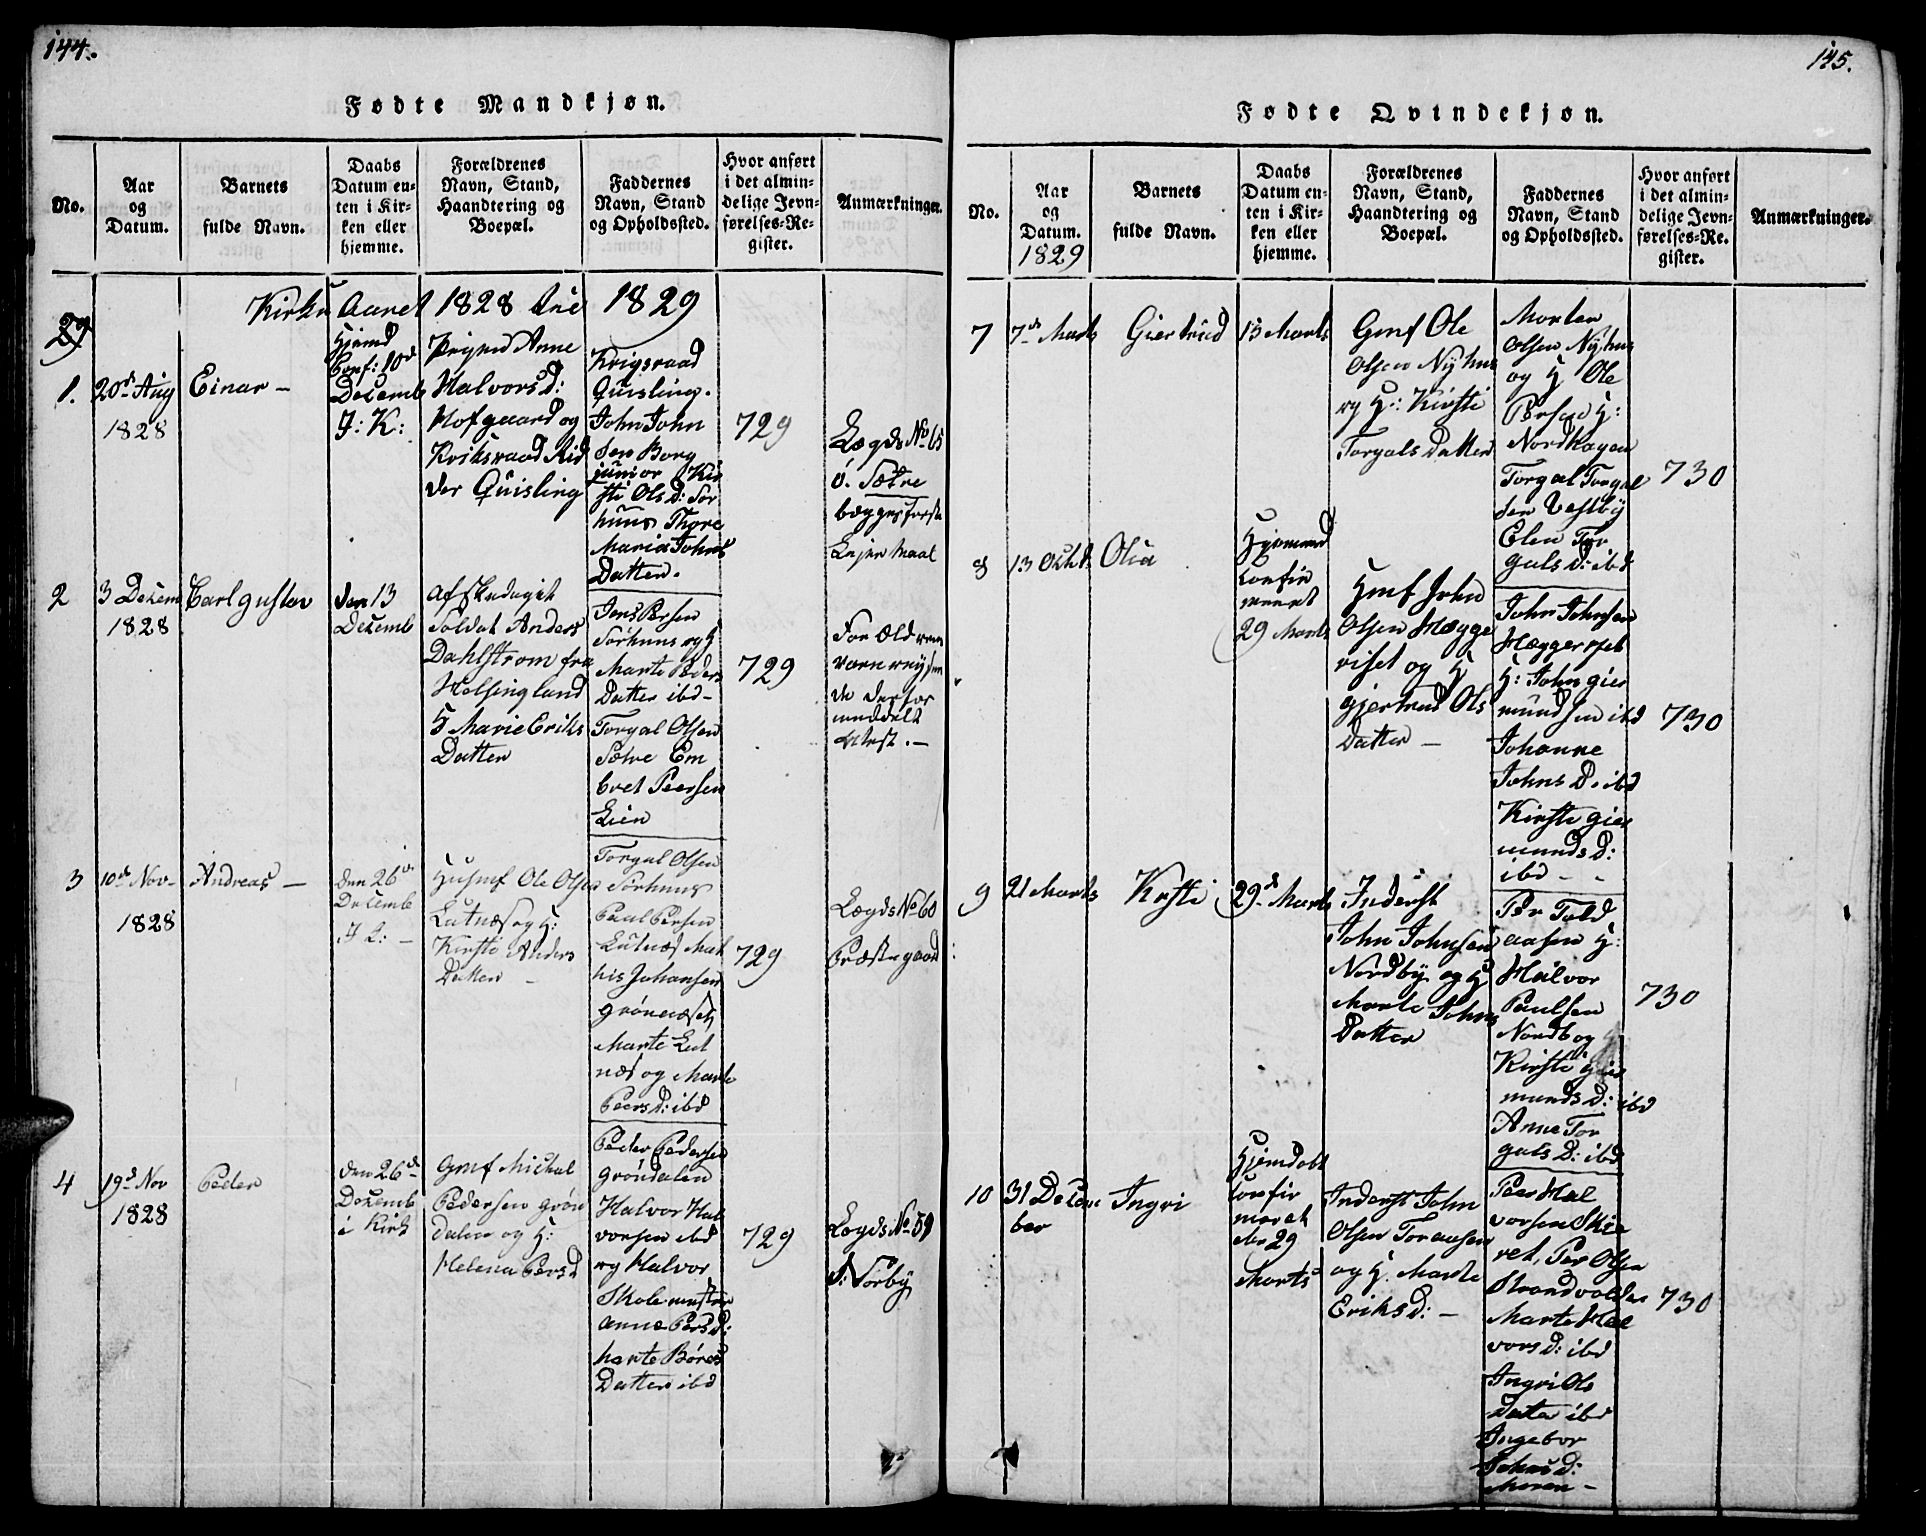 144.
Fødte Mandkjøn.
No.
Aar
og
Datum.
Barnets
fulde Navn.
Daabs
Datum en=
ten i Kir=
ken eller
hjemme.
Forældrenes
Navn, Stand,
Haandtering og
Boepæl.
Faddernes
Navn, Stand
og Opholdssted.
Hvor anført
i det almin=
delige Jevn=
førelses=Re=
gister.
Anmærkninger.
Kirke Aaret 1828 til 1829
29
1.
20d Aug
1828
Einar -
Hjemd
Conf: 10d
Decemb
I: K:
Anne
Halvorsd:
Hofgaard og
Quisling
Krigsraad
Quisling.
John John
sen Borg
junior Kir
sti Olsd: Sør
huus Thore
Maria Johns
Datter.
729
Lægds No 65
ö. Sætre
begges første
Lejermaal
2
3 Decem
1828
Carl gustav
den 13
Decemb
afskediget
Soldat Anders
Dahlstrom fra
Helsingland
Marie Eriks
Datter
Jens Persen
Sørhuus og H
Marte Peders
Datter ibd -
Torgal Olsen
Sætre Em
bret Peersen
Lien
729
Forældrene
vare
de derfor
meddelt
Attest. -
3
10d Nov-
1828
Andreas -
den 26d
Decemb
I K: -
Husmf Ole Olsen
Lutnæs og H:
Kirsti Anders
Datter -
Torgal Olsen
Sørhuus
Paul Persen
Lutnæs Mat
his Johansen
grönnæset
Marte Lut
næs og Marte
Peersd: ibd
729
Lægds No 60
Præstegaard
4
19d Nov
1828
Peder
den 26d
Decemb
i Kirk
Gmf Michel
Pedersen grön
dalen og H:
Helena Persd
Peder Pedersen
gröndalen
Halvor Hal
vorsen ibd
og Halvor
Skolemester
anne Persd:
Marte Böres
Datter ibd
729
Lægds No 59
S: Nordby
145.
Fødte Qvindekjøn.
No.
Aar
og
Datum.
1829
Barnets
fulde Navn.
Daabs
Datum en=
ten i Kir=
ken eller
hjemme.
Forældrenes
Navn, Stand,
Haandtering og
Boepæl.
Faddernes
Navn, Stand
og Opholdssted.
Hvor anført
i det almin=
delige Jevn=
førelses=Re.
gister.
Anmærkninger.
7
7d Marts
Giertrud
15 Marts
Gmf Ole
Olsen Nyhus
og H: Kirsti
Torgals Datter
Morten
Olsen Nyhus
og H Ole
Persen H:
Nordhagen
Torgal Torgal
sen Vestby
Elen Tor
galsd: ibd
730
8
13 Octbr
Olia
Hjemmed
confir
meret
29 Marts
Hmf John
Olsen Hægge
riset og H
gjertrud Ols
Datter -
John Johnsen
Hæggeriset
H: John gier
mundsen ibd
Johanne
Johns D. ibd
Kirsti gier
mundsd:
ibd - -
730
9
21 Marts
Kirsti
29d Marts
Inderst
John Johnsen
Nordby og H
Marte Johns
Datter
Per Told
aasen H:
Halvor
Paulsen
Nordb og H
Kirsti Gier
munds d: ibd
Anne Tor
gals D: ibd
730
10
31 Decem
ber
Ingri
Hjemdøbt
confir
meret
den 29
Marts
Inderst John
Olsen Toraasen
og H. Marte
Eriksd: -
Peer Hal
vorsen Skie
ret, Per Olsen
Strandvolden
Marte Hal
vorsd: ibd
Ingri Ols
Datter ibd
Ingebor
Johnsd:
Moren -
730